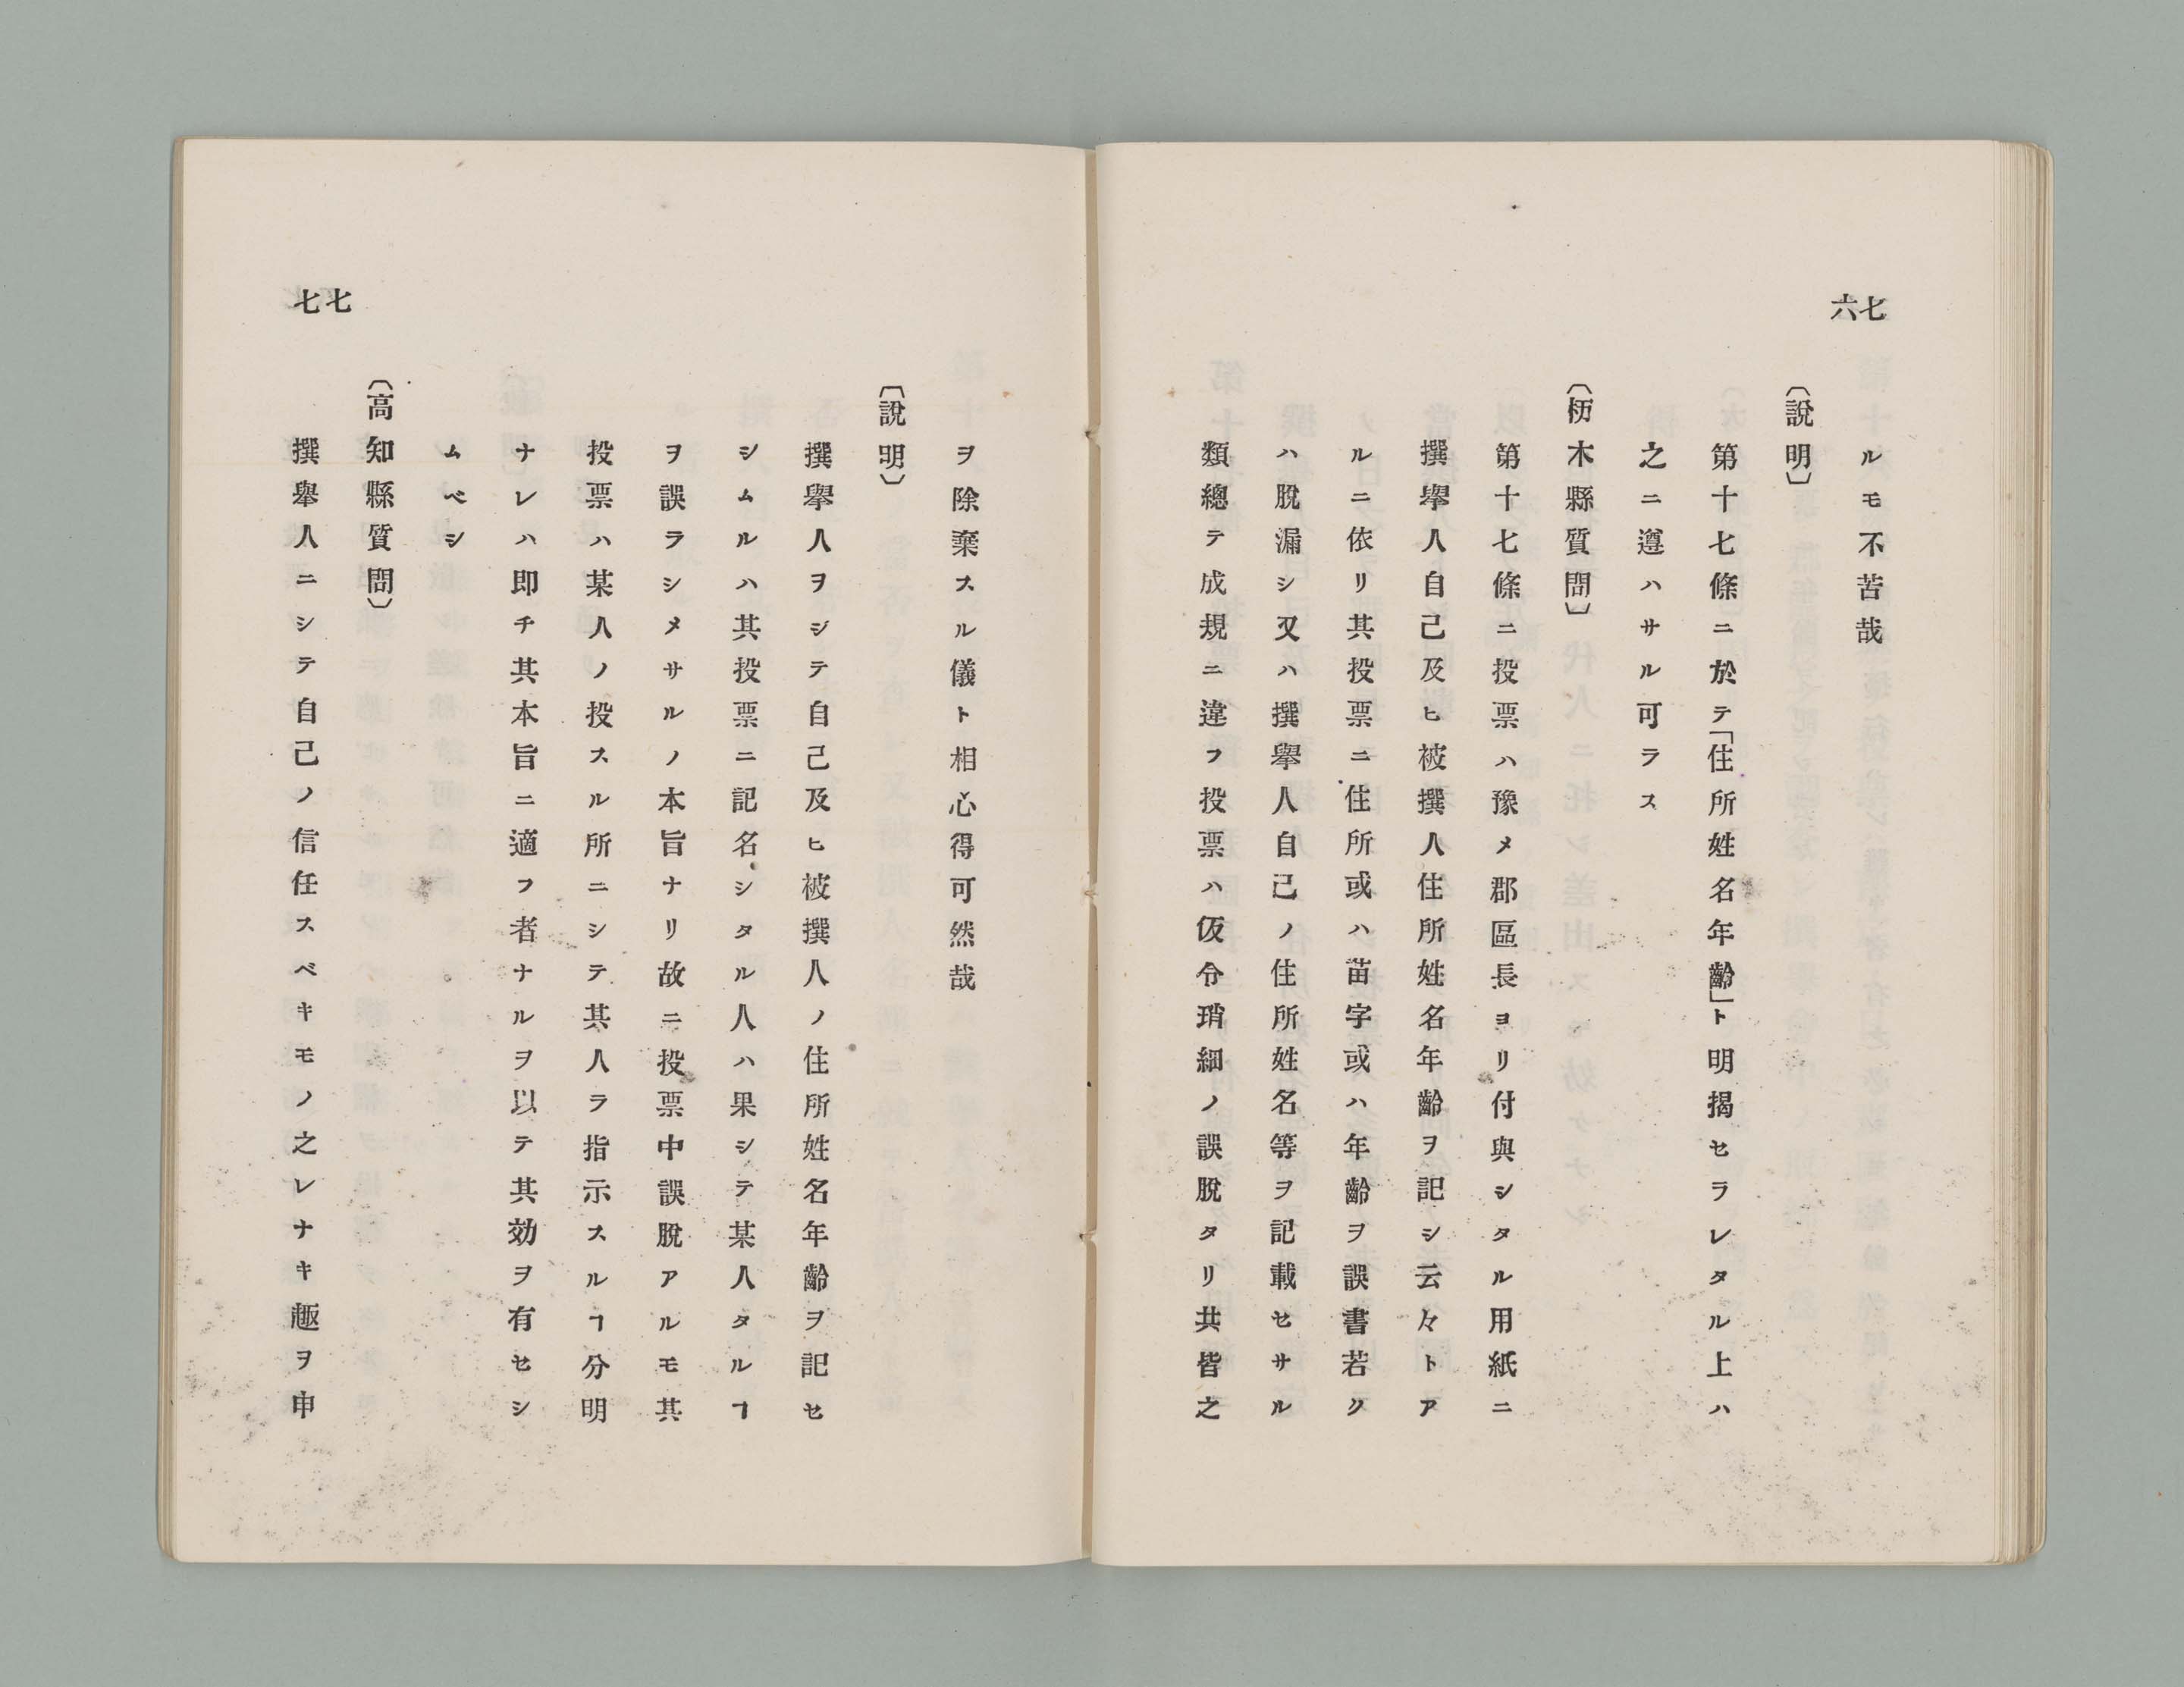 七六
ルモ不苦哉
〔說明〕
第十七條ニ於テ「住所姓名年齡」ト明揭セラレタル上ハ
之ニ遵ハサル可ラス
〔栃木縣質問〕
第十七條ニ投票ハ豫メ郡區長ヨリ付與シタル用紙ニ
撰擧人自己及ヒ被撰人住所姓名年齡ヲ記シ云々トア
ルニ依リ其投票ニ住所或ハ苗字或ハ年齡ヲ誤書若ク
ハ脫漏シ又ハ撰擧人自己ノ住所姓名等ヲ記載セサル
類總テ成規ニ違フ投票ハ仮令瑣細ノ誤脫タリ共皆之
七七
ヲ除棄スル儀ト相心得可然哉
〔說明〕
撰擧人ヲシテ自己及ヒ被撰人ノ住所姓名年齡ヲ記セ
シムルハ其投票ニ記名シタル人ハ果シテ某人タルヿ
ヲ誤ラシメサルノ本旨ナリ故ニ投票中誤脫アルモ其
投票ハ某人ノ投スル所ニシテ其人ヲ指示スルヿ分明
ナレハ即チ其本旨ニ適フ者ナルヲ以テ其効ヲ有セシ
ムベシ
〔高知縣質問〕
撰擧人ニシテ自己ノ信任スベキモノ之レナキ趣ヲ申